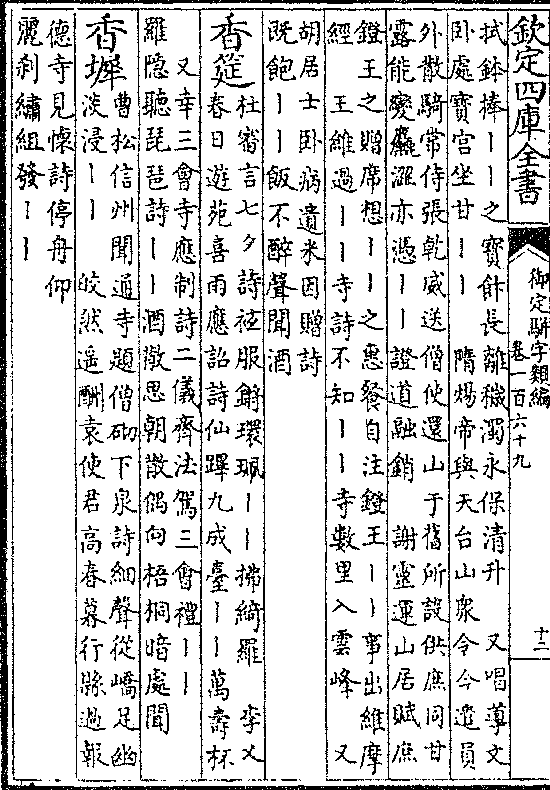 欽定四庫全書
御定駢字類編
卷一百六十九
十二
拭鉢捧丨丨之寶飰長離穢濁永保清升 又唱導文
卧處寶宫坐甘丨丨 隋煬帝與天台山衆令今遣員
外散騎常侍張乾威送僧使還山于舊所設供庶同甘
露能變麤澀亦憑丨丨證道融銷 謝靈運山居賦庶
鐙王之贈席想丨丨之惠餐自注鐙王丨丨事出維摩
經 王維過丨丨寺詩不知丨丨寺數里入雲峰 又
胡居士卧病遺米因贈詩
既飽丨丨飯不醉聲聞酒
香筵
杜審言七夕詩袨服鏘環珮丨丨拂綺羅 李乂
春日遊苑喜雨應詔詩仙蹕九成臺丨丨萬壽杯
又幸三會寺應制詩二儀齊法駕三會禮丨丨
羅隱聽琵琶詩丨丨酒散思朝散偶向梧桐暗處聞
香墀
曹松信州聞通寺題僧砌下泉詩細聲從嶠足幽
淡浸丨丨 皎然遥酬袁使君高春暮行縣過報
德寺見懷詩停舟仰
麗刹繡組發丨丨